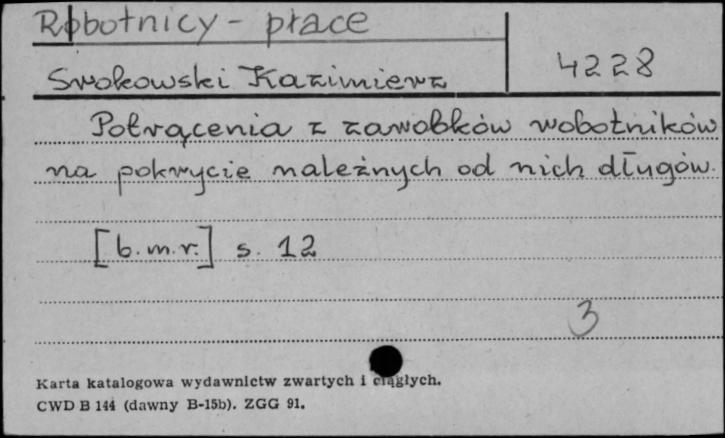 Robotnicy - płace
Srokowski Kazimierz
4228
Potrącenia z zarobków robotników
na pokrycie należnych od nich długów.
[b.m.r.] s. 12
3
Karta katalogowa wydawnictw zwartych i ciągłych.
CWD B 144 (dawny B-15b). ZGG 91.